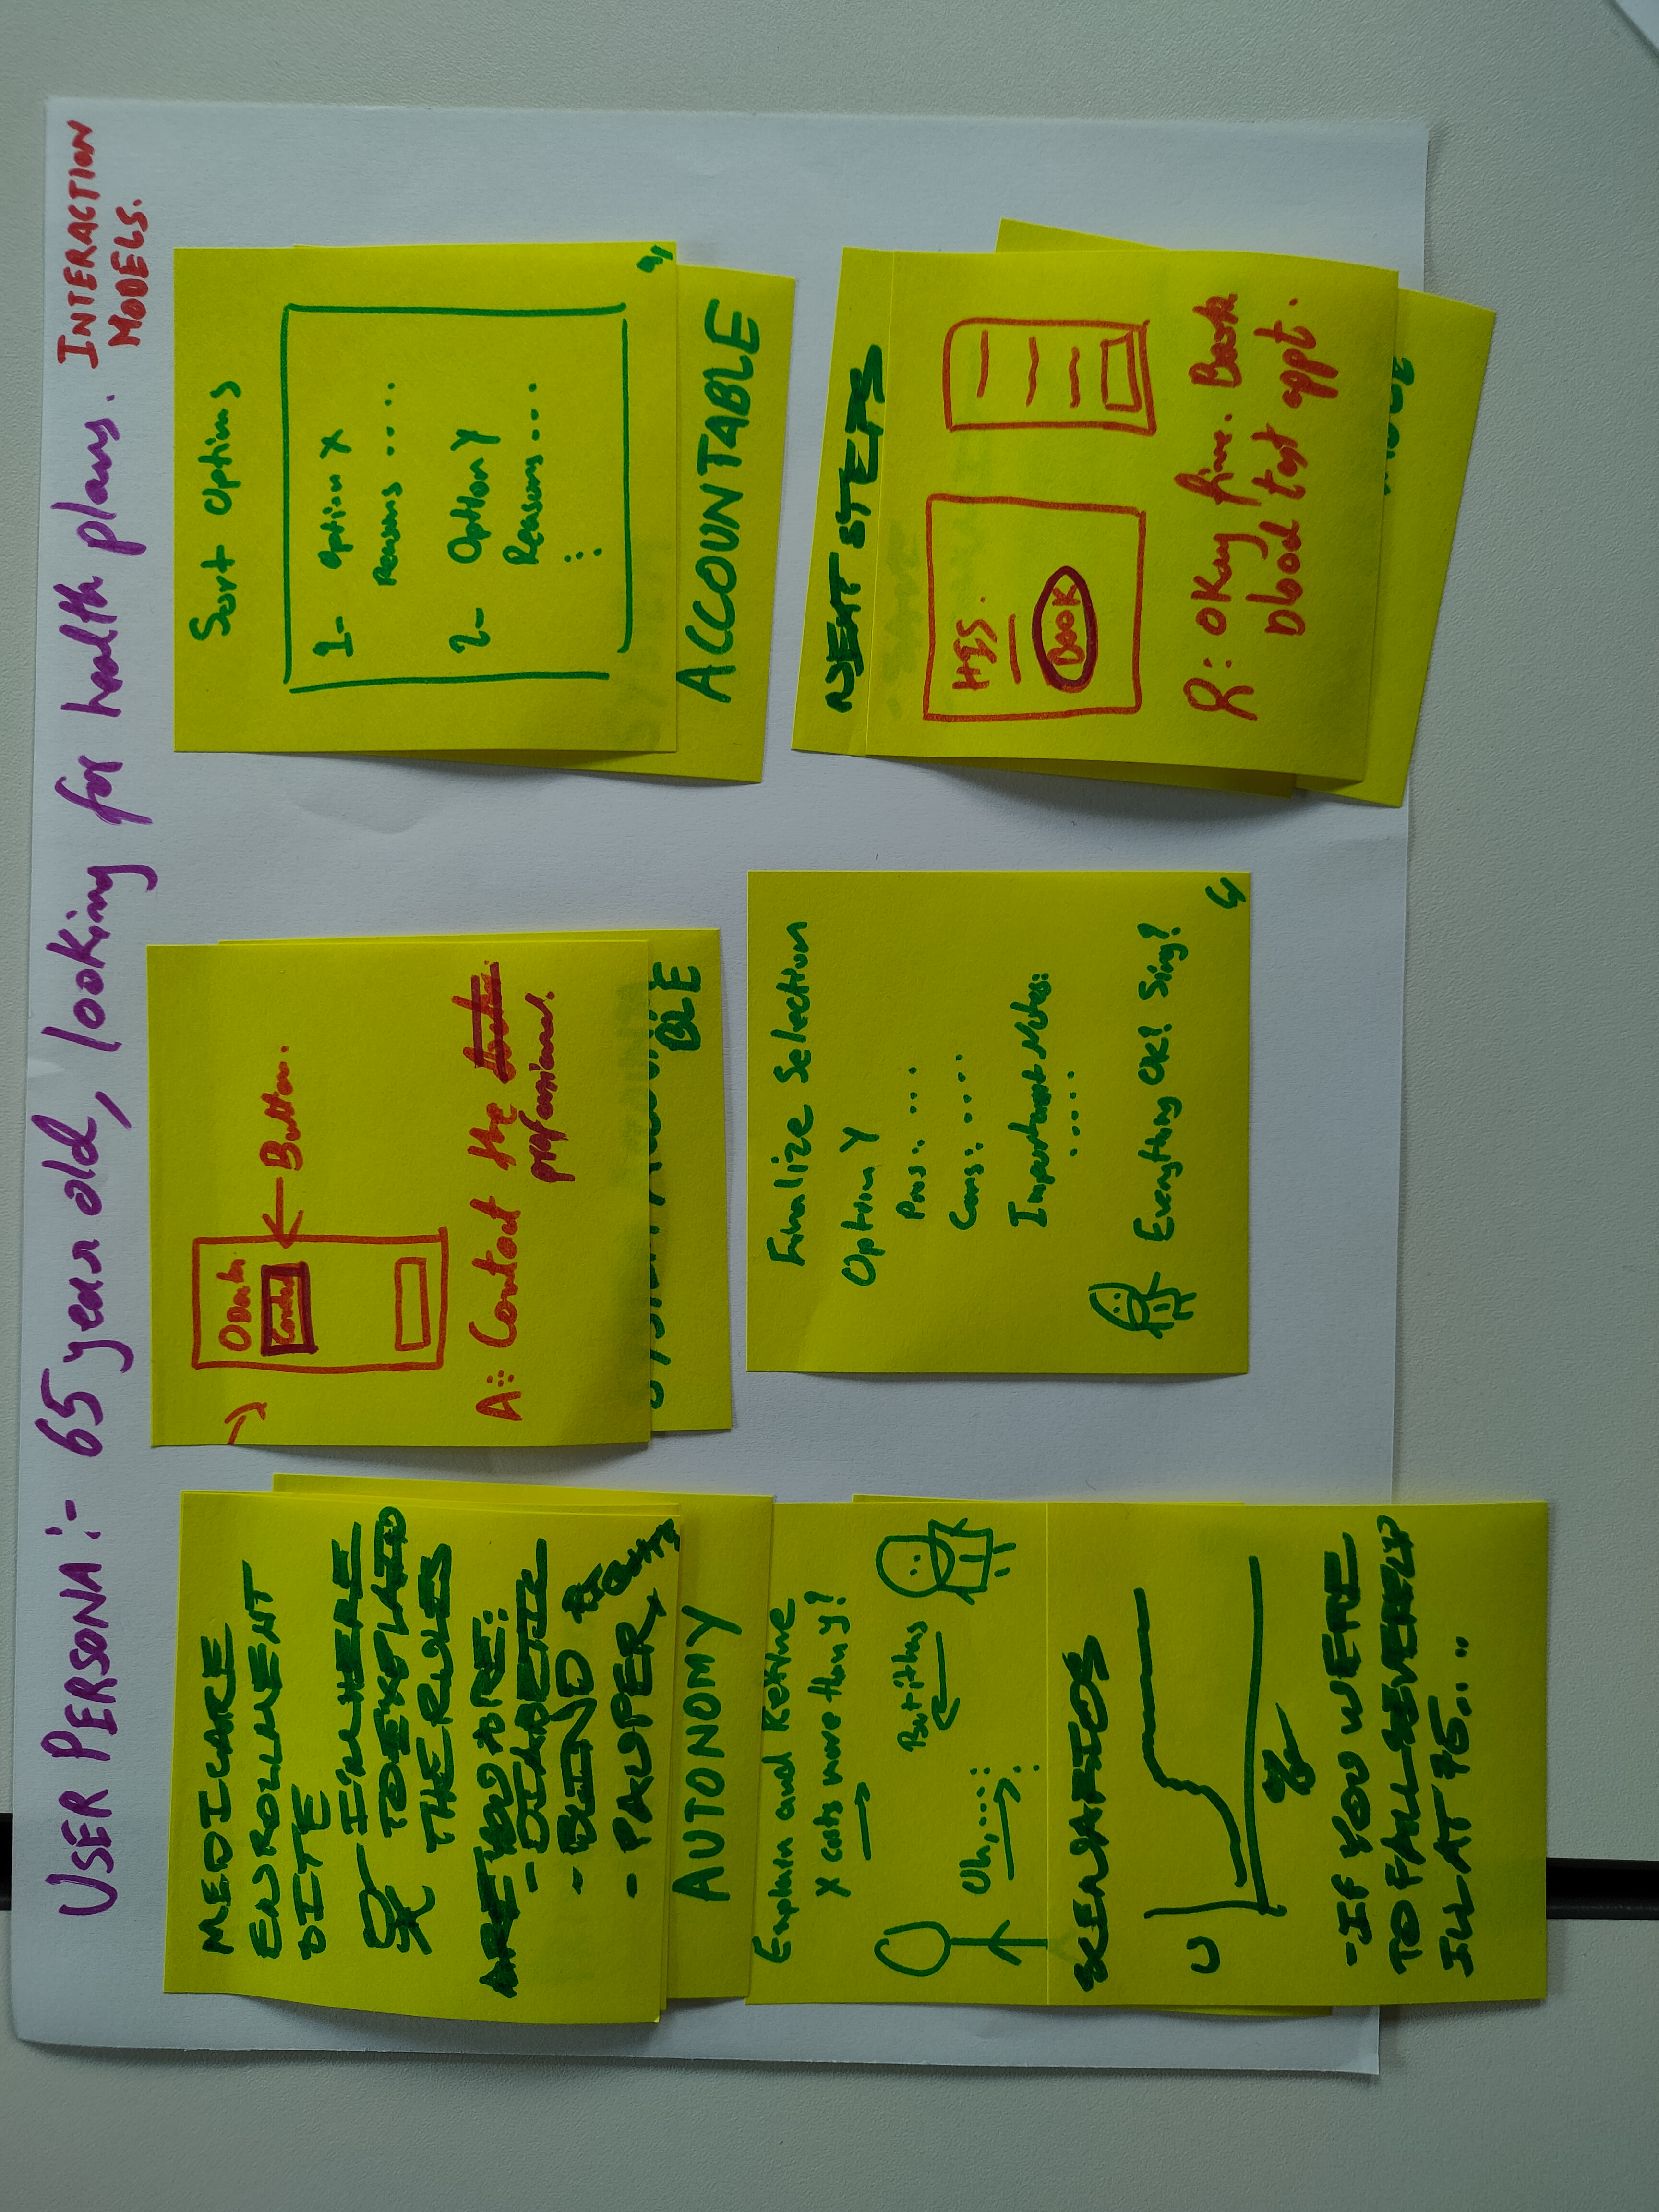 USER PERSONA:- 65 year old, looking for health plans.
INTERACTION
MODELS.
MEDICARE
ENROLLMENT
SITE
- I'M HERE
TO EXPLAIN
THE RULES
ARE YOU ARE:
- DIABETIC
- BLIND
- PAUPER
AUTONOMY
Explain and Refine
X costs more than Y?
But it has
Uh,....:
SCENARIOS
U
- IF YOU WERE
TO FALL SEVERELY
ILL AT 75...
Contact
← Button.
A: Contact the
professional.
BLE
Finalize Selection
Option Y
Pros: ....
Cons: ....
Important Notes:
.....
- Everything OK? Sing?
Sort Options
1- Option X
Reasons ....
2- Option Y
Reasons ...
ACCOUNTABLE
NEXT STEPS
Book
: Okay fine. Book
blood test appt.